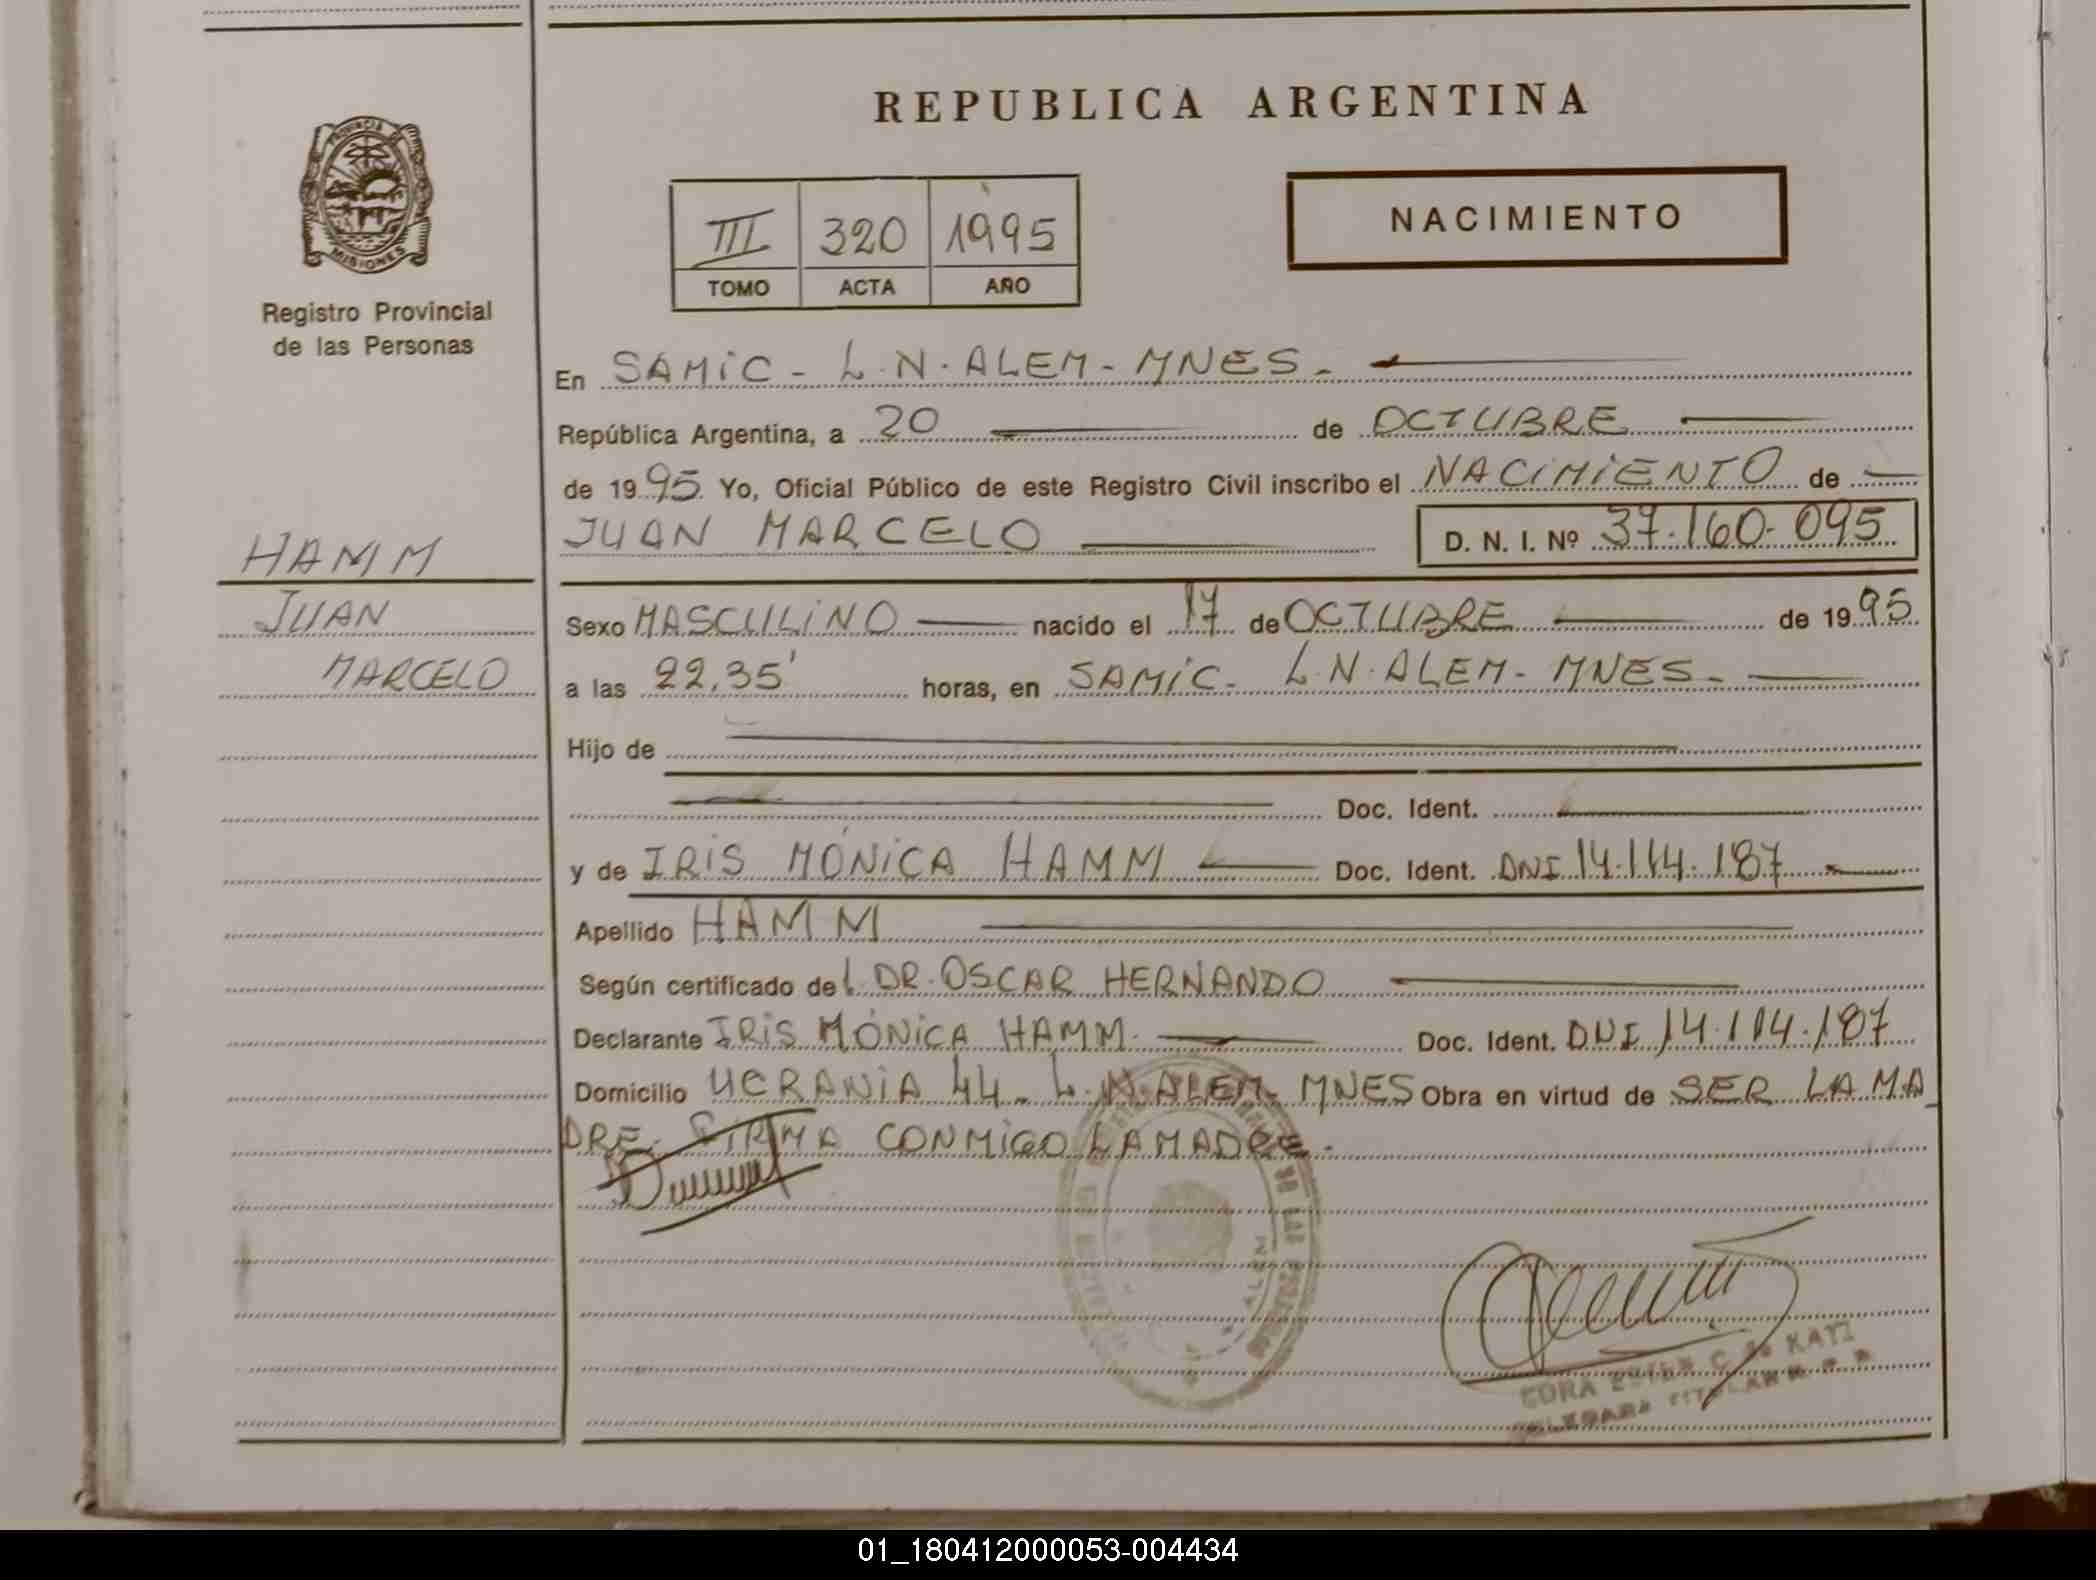 REPUBLICA ARGENTINA
PROVINCIA DE
MISIONES
Registro Provincial
de las Personas
III 320 1995
TOMO ACTA AÑO
NACIMIENTO
En SAMIC - L.N. ALEM - MNES -
República Argentina, a 20 de OCTUBRE
de 1995 Yo, Oficial Público de este Registro Civil inscribo el NACIMIENTO de
JUAN MARCELO D. N. I. Nº 37.160.095
HAMM
JUAN
MARCELO
Sexo MASCULINO nacido el 17 de OCTUBRE de 1995
a las 22.35' horas, en SAMIC - L.N. ALEM - MNES -
Hijo de
Doc. Ident.
y de IRIS MÓNICA HAMM Doc. Ident. DNI 14.114.187
Apellido HAMM
Según certificado del DR. OSCAR HERNANDO
Declarante IRIS MÓNICA HAMM. Doc. Ident. DNI 14.114.187
Domicilio UCRANIA 44 - L.N. ALEM - MNES Obra en virtud de SER LA MA
DRE. FIRMA CONMIGO LA MADRE.
ALEM
01_180412000053-004434